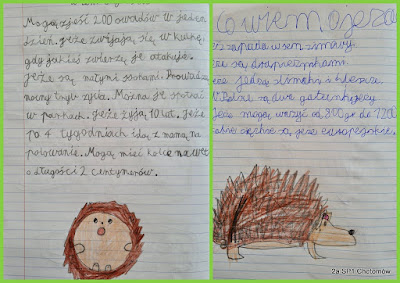 Mogą zjeść 200 owadów w jeden
dzień. Jeże zwijają się w kulkę,
gdy jakieś zwierzę je atakuje.
Jeże są nocnymi ssakami. Prowadzą
nocny tryb życia. Można je spotkać
w parkach. Jeże żyją 10 lat. Jeże
po 4 tygodniach idą z mamą na
polowanie. Mogą mieć kolce nawet
o długości 2 centymetrów.
Co wiem o jeżac
zapada w sen zimowy.
są drapieżnikami.
jedzą ślimaki i kleszcze
W Polsce są dwa gatunki jeży
Jeże mogą ważyć od 800 g do 1200
są jeże europejskie.
2a SP1 Chotomów